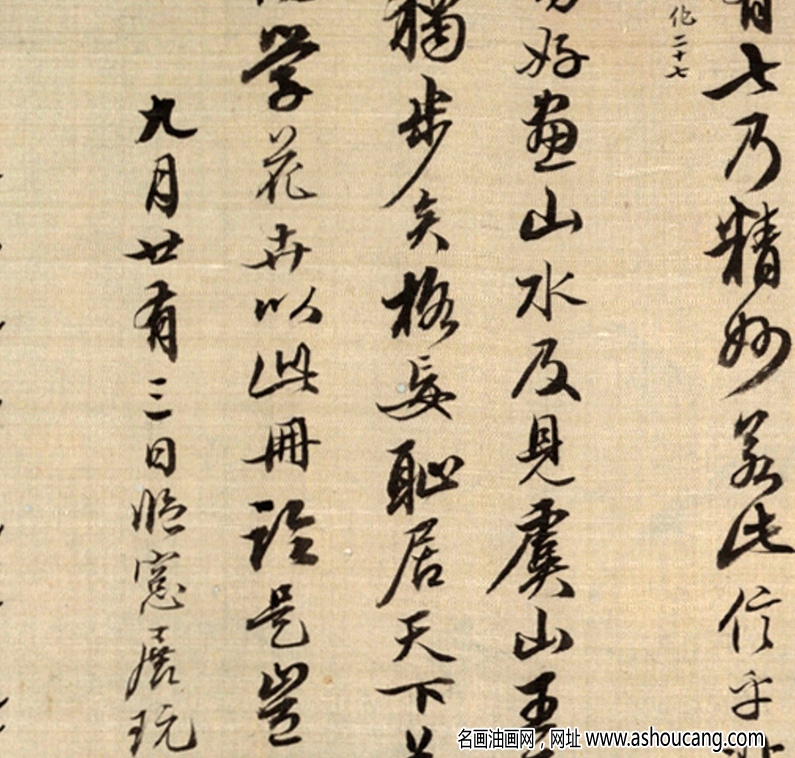 有七乃精妙若此信乎
二十七
好畫山水及見虞山王
獨步矣格妄恥居天下
學花卉以此冊證是豈
九月廿有三日晴窻展玩
名画油画网，网址 www.ashoucang.com